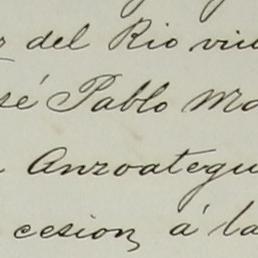 del Rio
Pablo
Anzoategu
cesion, á la